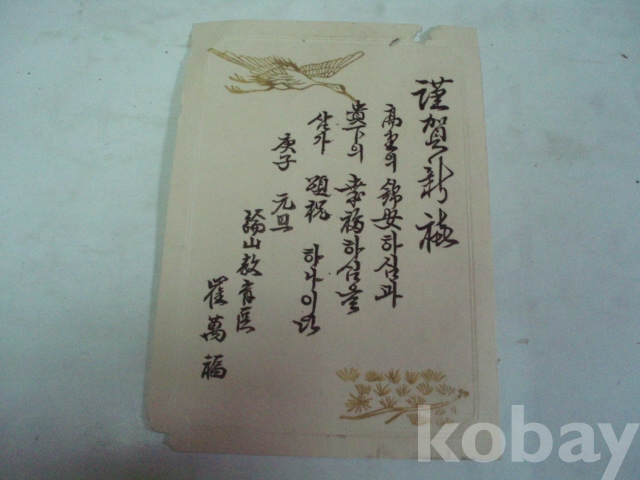 謹賀新禧
高堂의 錦安하심과
貴下의 幸福하심을
삼가 頌祝 하나이다
庚子 元旦
山教育區
崔萬福
kobay